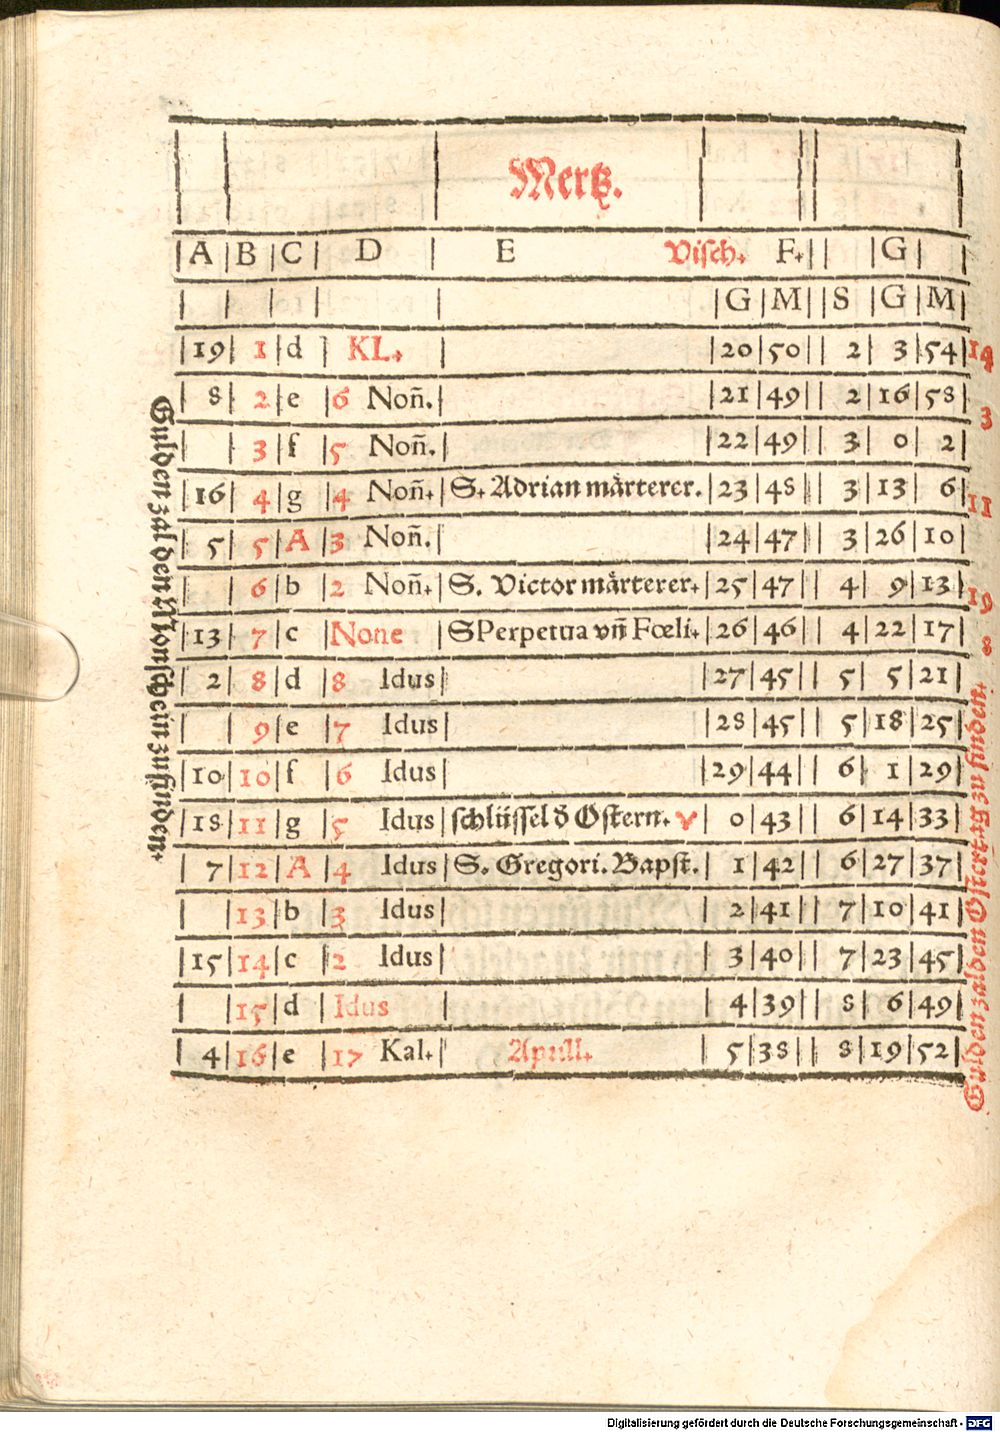 Mertz.
A B C D E Visch. F. G
G M S G M
19 1 d KL. 20 50 2 3 54 14
8 2 e 6 Noñ. 21 49 2 16 58
3 f 5 Noñ. 22 49 3 0 2 3
16 4 g 4 Noñ. S. Adrian mårterer. 23 48 3 13 6
5 5 A 3 Noñ. 24 47 3 26 10 11
6 b 2 Noñ. S. Victor mårterer. 25 47 4 9 13 19
13 7 c None SPerpetua vñ Fœli. 26 46 4 22 17 8
2 8 d 8 Idus 27 45 5 5 21
9 e 7 Idus 28 45 5 18 25
10 10 f 6 Idus 29 44 6 1 29
18 11 g 5 Idus schlüssel d Ostern. V 0 43 6 14 33
7 12 A 4 Idus S. Gregori. Bapst. 1 42 6 27 37
13 b 3 Idus 2 41 7 10 41
15 14 c 2 Idus 3 40 7 23 45
15 d Idus 4 39 8 6 49
4 16 e 17 Kal. Aprill. 5 38 8 19 52
Gulden zal den Monschein zu finden.
Gulden zal den Ostertag zu finden.
Digitalisierung gefördert durch die Deutsche Forschungsgemeinschaft - DFG